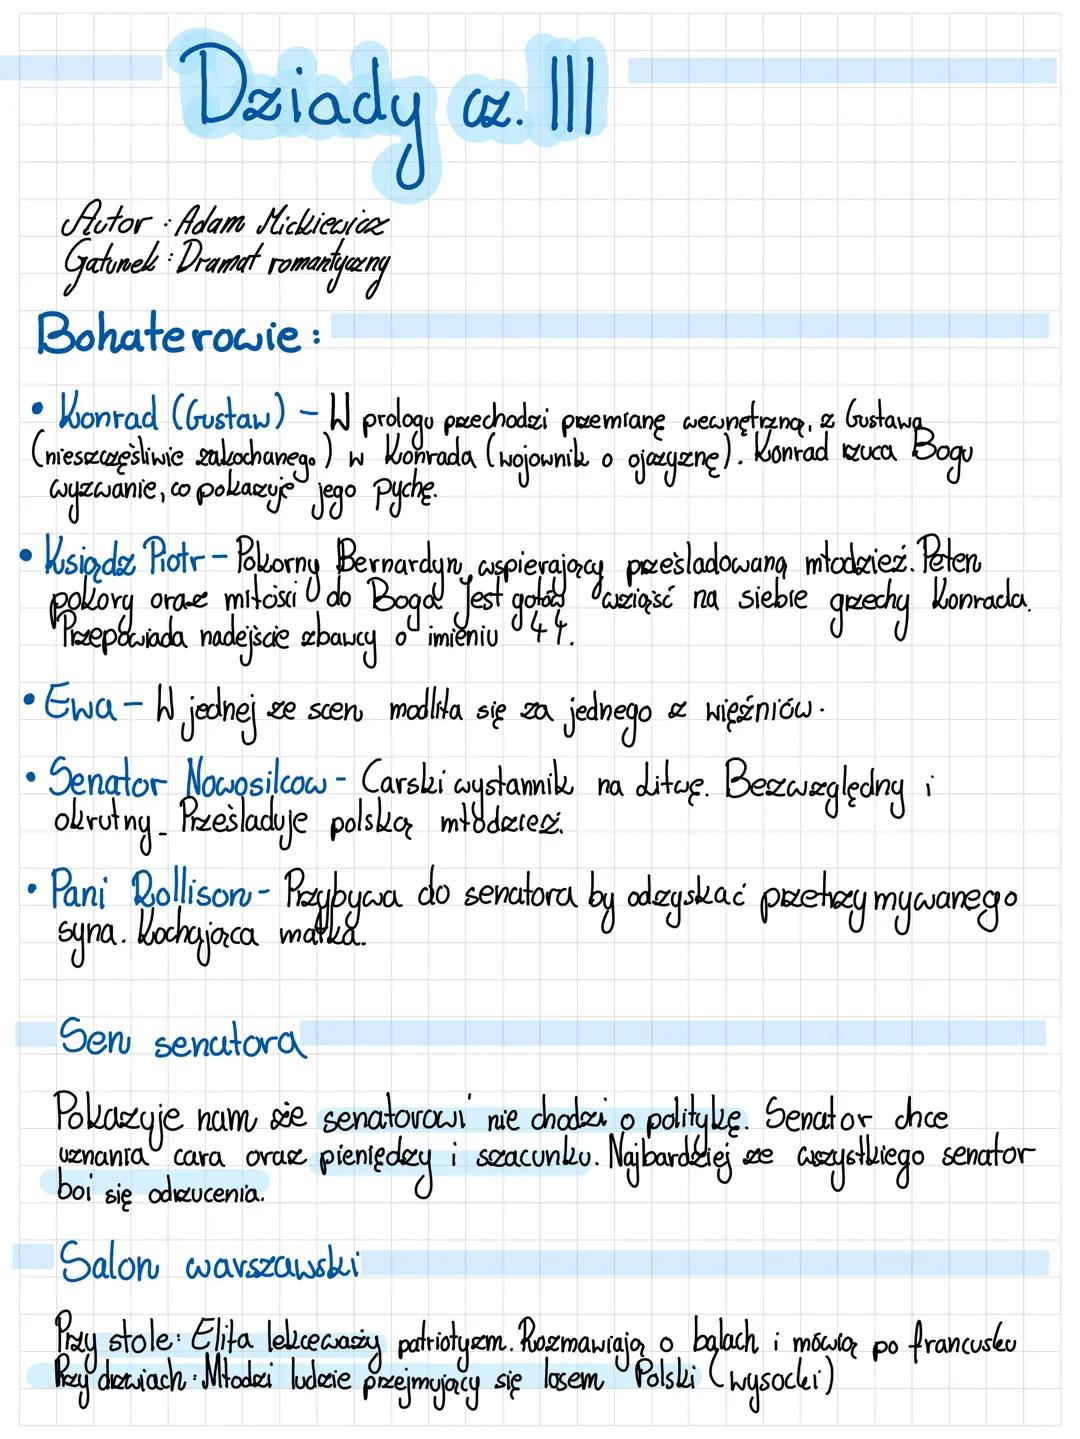 Dziady cz. III
Autor: Adam Mickiewicz
Gatunek: Dramat romantyczny
Bohaterowie:
• Konrad (Gustaw) – W prologu przechodzi przemianę wewnętrzną, z Gustawa
(nieszczęśliwie zakochanego) w Konrada (wojownik o ojczyznę). Konrad rzuca Bogu
wyzwanie, co pokazuje jego pychę.
• Ksiądz Piotr – Pokorny Bernardyn, wspierający prześladowaną młodzież. Pełen
pokory oraz miłości do Boga. Jest gotów wziąść na siebie grzechy Konrada.
Przepowiada nadejście zbawcy o imieniu 44.
• Ewa – W jednej ze scen modliła się za jednego z więźniów.
• Senator Nowosilcow - Carski wysłannik na Litwę. Bezwzględny i
okrutny. Prześladuje polską młodzież.
• Pani Rollison - Przybywa do senatora by odzyskać przetrzymywanego
syna. Kochająca matka.
Sen senatora
Pokazuje nam że senatorowi nie chodzi o politykę. Senator chce
uznania cara oraz pieniędzy i szacunku. Najbardziej ze wszystkiego senator
boi się odrzucenia.
Salon warszawski
Przy stole: Elita lekceważy patriotyzm. Rozmawiają o balach i mówią po francusku
Przy drzwiach: Młodzi ludzie przejmujący się losem Polski (wysocki)